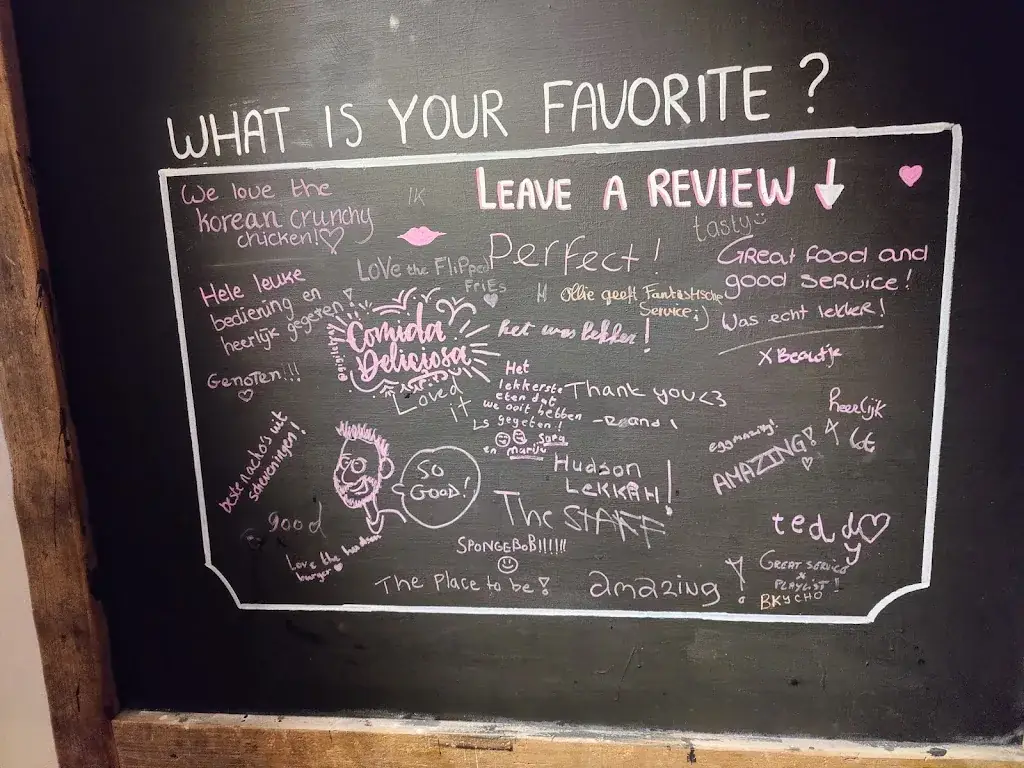 WHAT IS YOUR FAVORITE ?
LEAVE A REVIEW
We love the
korean crunchy
chicken!
IK
tasty
Perfect!
Great food and
good service!
Love the Flipped
Fries
Hele leuke
bediening en
heerlijk gegeten!
Ollie geeft Fantastische
Service ;)
Was echt lekker!
x Beautje
Comida
Deliciosa
het was lekker!
Genoten!!!
Loved
it
Het
lekkerste
eten dat
we ooit hebben
gegeten!
Sara
en
Thank you <3
heerlijk
AMAZING!
beste nacho's uit
scheveningen!
SO
GOOD!
Hudson
LEKKAH!
The STAFF
good
Love the hudson
burger
SPONGEBOB!!!!!!
teddy
The Place to be!
amazing !
GREAT SERVICE
x
PLAYLIST!
BKYCHO